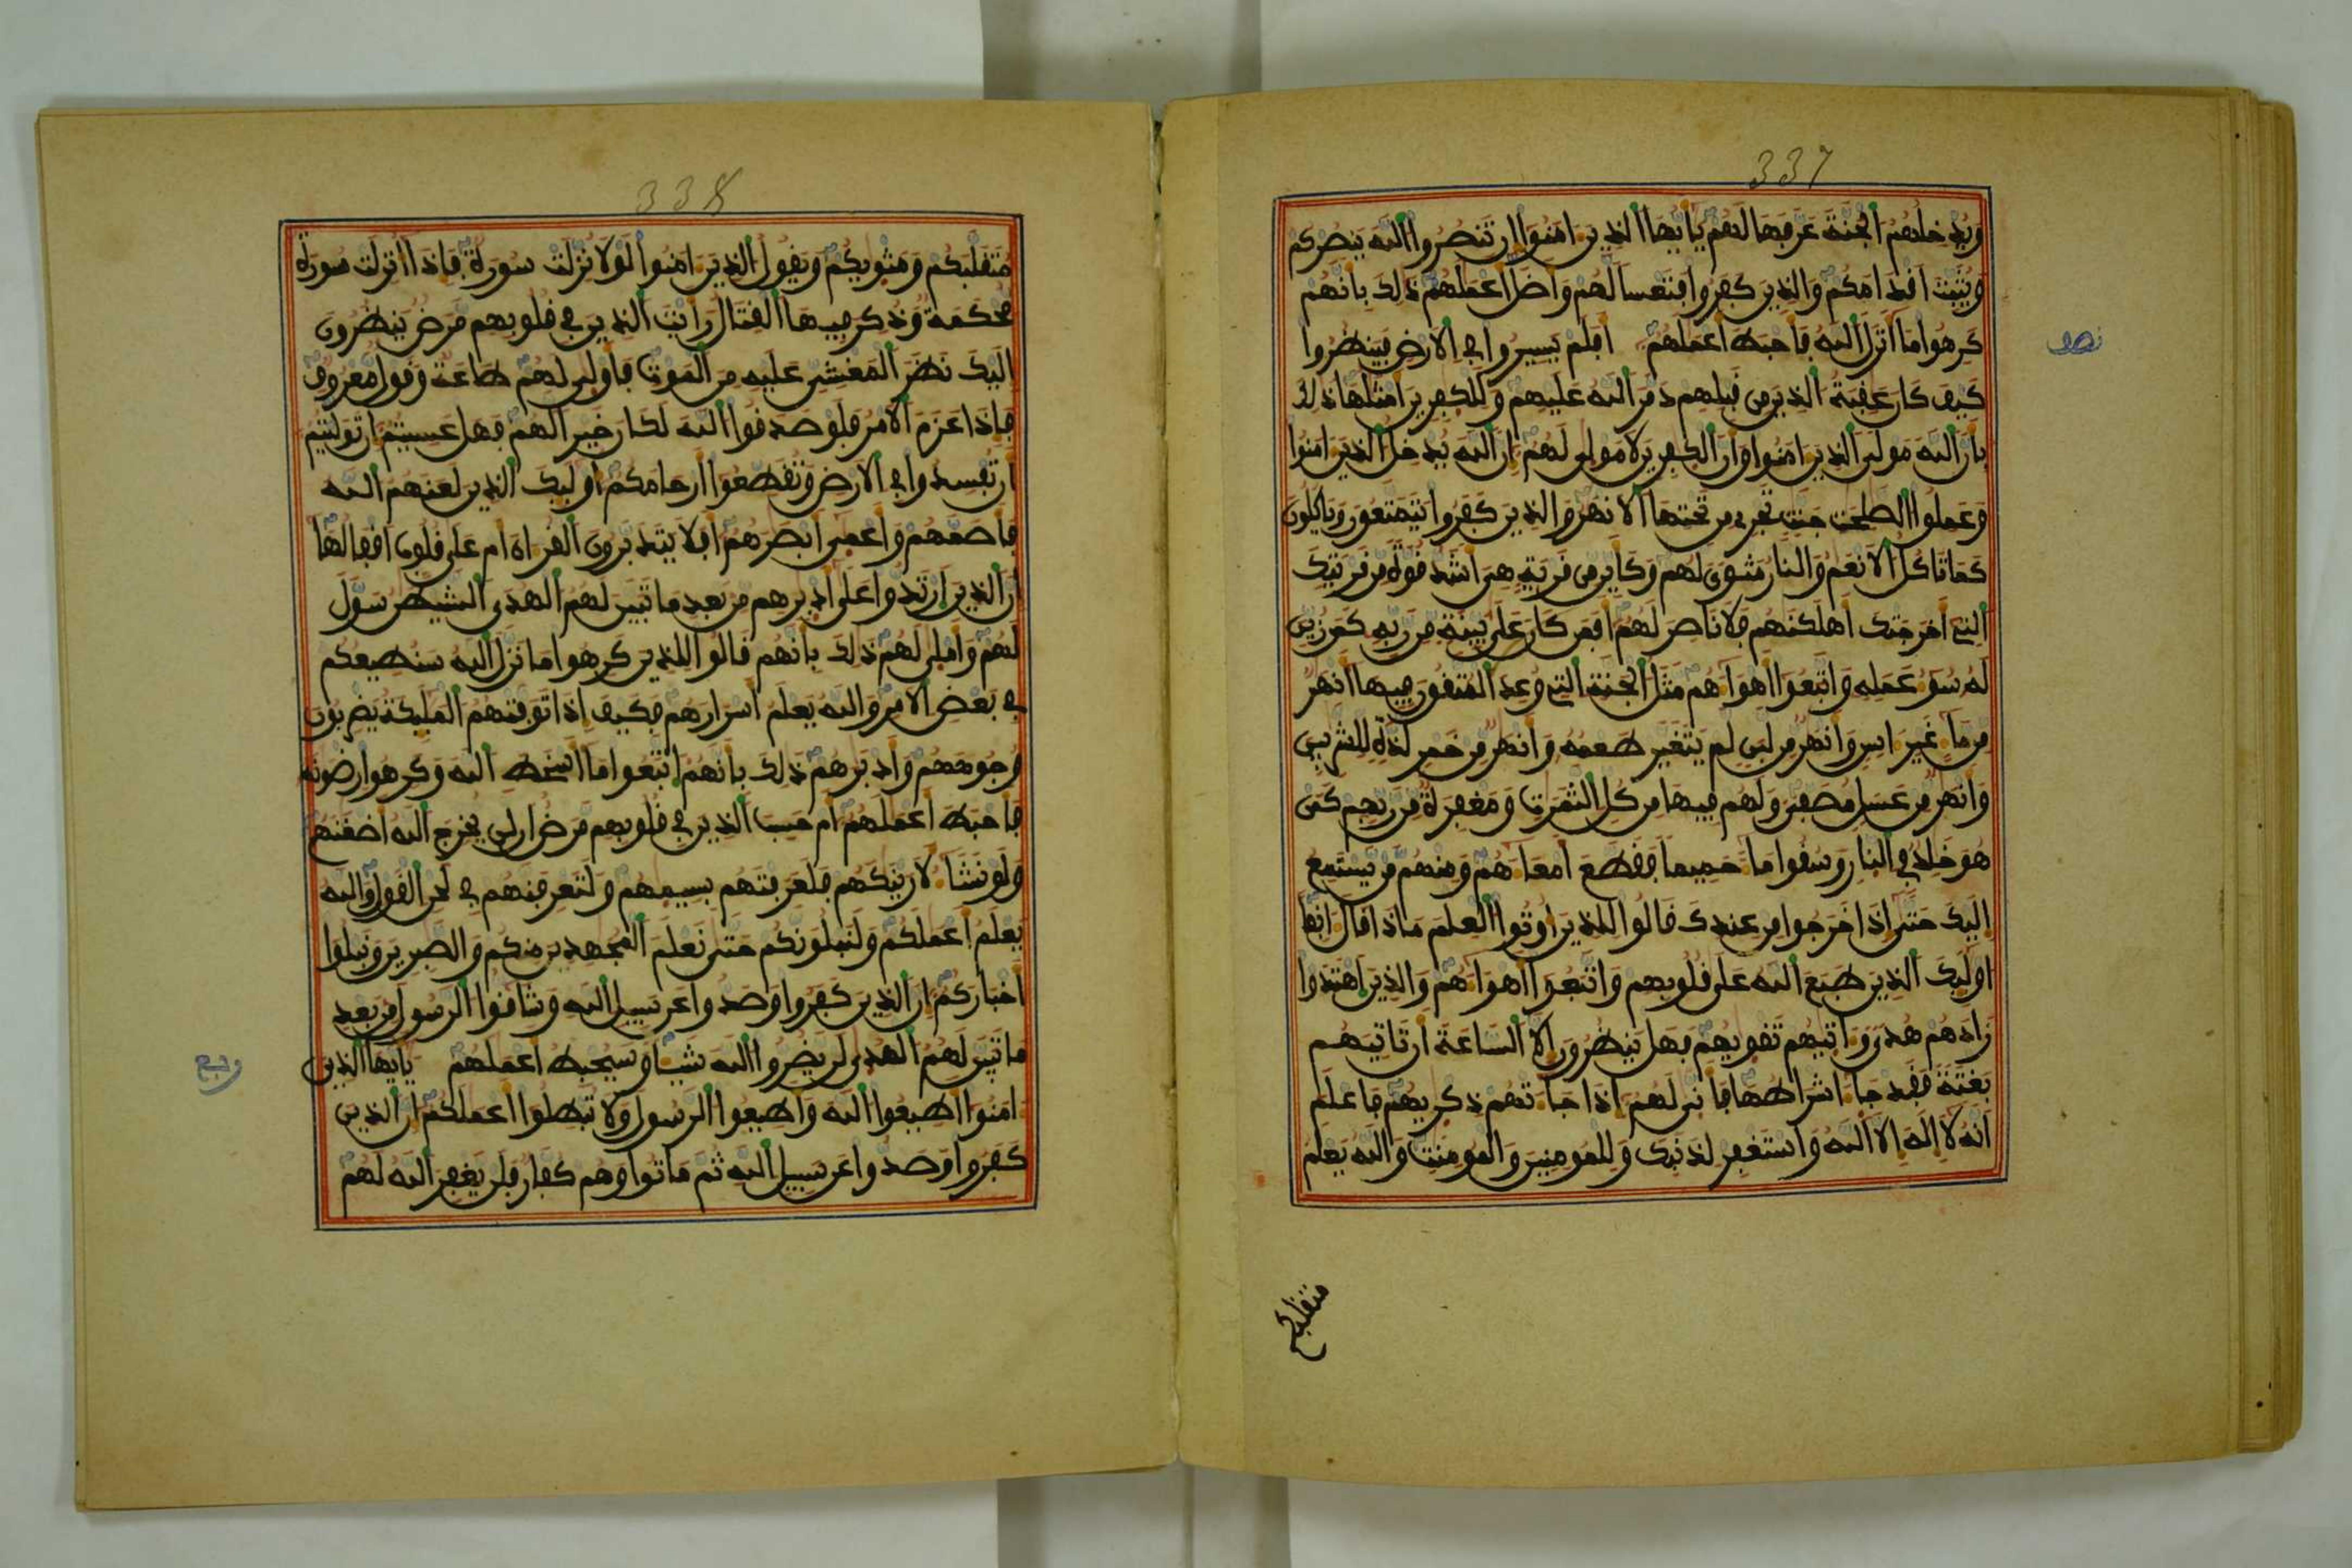 337
ويدخلهم الجنة عرفها لهم يايها الذين امنوا ان تنصروا الله ينصركم
ويثبت افدامكم والذين كفروا فتعسا لهم واضل اعملهم ذلك بانهم
كرهوا ما انزل الله فاحبط اعملهم افلم يسيروا في الارض فينظروا
نصف
كيف كان عفبة الذين من فبلهم دمر الله عليهم وللكفرين امثلها ذلك
بان الله مولى الذين امنوا وان الكفرين لا مولى لهم ان الله يدخل الذين امنوا
وعملوا الصلحت جنت تجري من تحتها الانهر والذين كفروا يتمتعون وياكلون
كما تاكل الانعم والنار مثوى لهم وكاين من فرية هي اشد فوة من فريتك
التي اخرجتك اهلكنهم فلا ناصر لهم افمن كان على بينة من ربه كمن زين
له سوء عمله واتبعوا اهواءهم مثل الجنة التي وعد المتفون فيها انهر
من ماء غير اسن وانهر من لبن لم يتغير طعمه وانهر من خمر لذة للشربين
وانهر من عسل مصفى ولهم فيها من كل الثمرت ومغفرة من ربهم كمن
هو خلد في النار وسفوا ماء حميما ففطع امعاءهم ومنهم من يستمع
اليك حتى اذا خرجوا من عندك فالوا للذين اوتوا العلم ماذا فال انفا
اوليك الذين طبع الله على فلوبهم واتبعوا اهواءهم والذين اهتدوا
زادهم هدى وءاتيهم تفويهم فهل ينظرون الا الساعة ان تاتيهم
بغتة ففد جاء اشراطها فانى لهم اذا جاءتهم ذكريهم فاعلم
انه لا اله الا الله واستغفر لذنبك وللمومنين والمومنت والله يعلم
متفلبكم
338
متفلبكم ومثويكم ويفول الذين امنوا لولا نزلت سورة فاذا انزلت سورة
محكمة وذكر فيها الفتال رايت الذين في فلوبهم مرض ينظرون
اليك نظر المغشي عليه من الموت فاولى لهم طاعة وفول معروف
فاذا عزم الامر فلو صدفوا الله لكان خيرا لهم فهل عسيتم ان توليتم
ان تفسدوا في الارض وتفطعوا ارحامكم اوليك الذين لعنهم الله
فاصمهم واعمى ابصرهم افلا يتدبرون الفرءان ام على فلوب افبالها
ان الذين ارتدوا على ادبرهم من بعد ما تبين لهم الهدى الشيطن سول
لهم واملى لهم ذلك بانهم فالوا للذين كرهوا ما نزل الله سنطيعكم
في بعض الامر والله يعلم اسرارهم فكيف اذا توفتهم المليكة يضربون
وجوههم وادبرهم ذلك بانهم اتبعوا ما اسخط الله وكرهوا رضونه
فاحبط اعملهم ام حسب الذين في فلوبهم مرض ان لن يخرج الله اضغنهم
ولو نشاء لارينكهم فلعرفتهم بسيمهم ولتعرفنهم في لحن الفول والله
يعلم اعملكم ولنبلونكم حتى نعلم المجهدين منكم والصبرين ونبلوا
اخباركم ان الذين كفروا وصدوا عن سبيل الله وشافوا الرسول من بعد
ما تبين لهم الهدى لن يضروا الله شيئا وسيحبط اعملهم يايها الذين
ربع
امنوا اطيعوا الله واطيعوا الرسول ولا تبطلوا اعملكم ان الذين
كفروا وصدوا عن سبيل الله ثم ماتوا وهم كفار فلن يغفر الله لهم